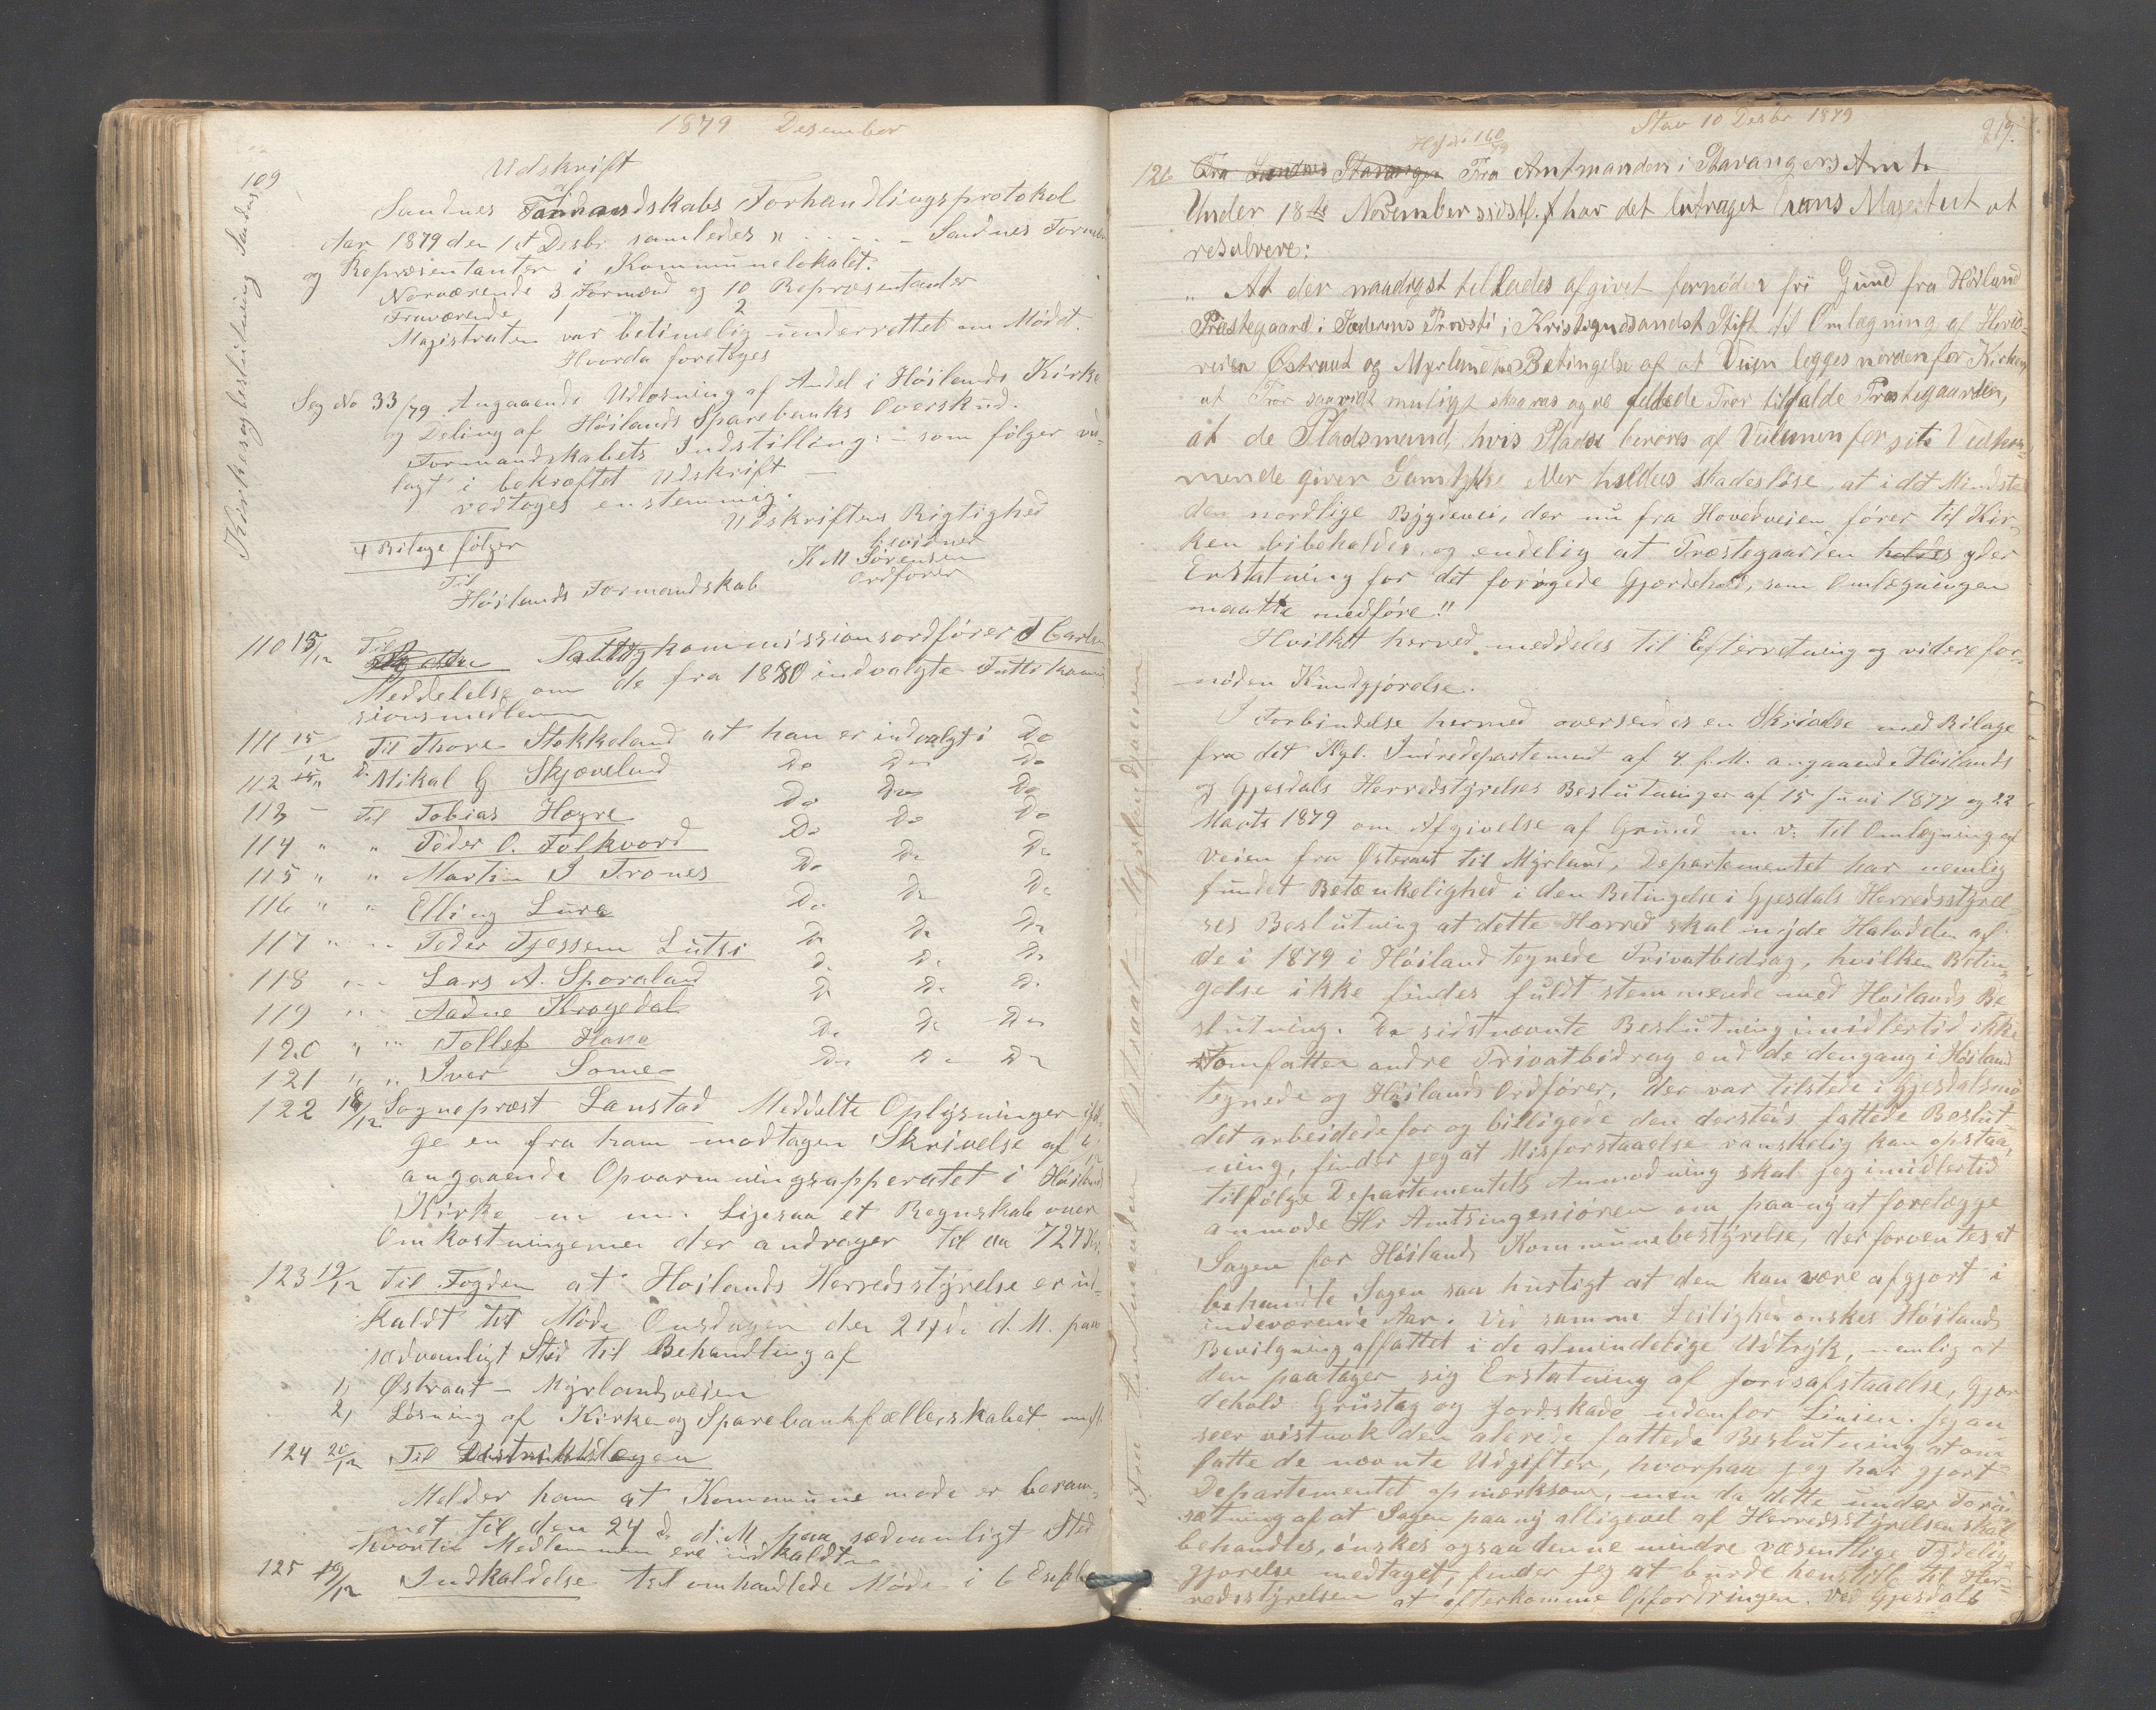 1879 Desember
109
Kirkesagbeslutning Sandnes
Udskrift
Sandnes Formandskabs Forhandlingsprotokol
Aar 1879 den 1st Desbr samledes " - - - - Sandnes Formæn
og Repræsentanter i Kommunelokalet.
Nærværende 3 Formænd og 10 Repræsentanter
Fraværende 1 2
Magistraten var betimelig underrettet om Mødet.
Hvorda foretoges
Sag No 33/79 Angaaende Udløsning af Andel i Höilands Kirke
og Deling af Höilands Sparebanks Overskud.
Formandskabets Indstilling: - som følger ved-
lagt i bekræftet Udskrift -
vedtoges enstemmig.
Udskriftens Rigtighed
bevidner
4 Bilage følger
K M Sörensen
Ordförer
Til
Höilands Formandskab
110 15/12 Til Fattigkommissionsordförer Carlsen
Meddelelse om de fra 1880 indvalgte Fattikommis
sionsmedlemmer
111 15/12 Til Thore Stokkeland at han er indvalgt i Do
112 15/" D. Mikal G Skjæveland Do Do Do
113 - Til Tobias Høgre Do Do Do
114 " " Peder O. Folkvord Do Do Do
115 " " Martin I Trones Do Do Do
116 " " Elling Lura Do Do Do
117 " " Peder Tjessem Lutsi Do Do Do
118 " " Lars A. Sporaland D. D. D.
119 " " Aadne Krogedal D. D. D.
120 " " Tollef Hana Do D. Do
121 " " Iver Somer Do D. Do
122 18/12 Sogneprest Lanstad Meddelte Oplysninger iføl-
ge en fra ham modtagen Skrivelse af 4/12
angaaende Opvarmningsapperatet i Höiland
Kirke m m. Ligesaa et Regnskab over
Omkostningerne der andrager til ca 727 Kr.
123 19/12 Til Fogden at Höilands Herredsstyrelse er ind-
kaldt til Møde Onsdagen den 24de d. M. paa
sædvanligt Sted til Behandling af
1, Østraat - Myrlandsveien
2, Løsning af Kirke og Sparebankfællesskabet
124 20/12 Til Distriktslægen
Melder ham at Kommunemøde er beram-
met til den 24 d. d. M. paa sædvanligt Sted
hvortil Medlemmen ere indkaldt
125 19/12 Indkaldelse til omhandlede Møde i 6 Exepl
Stav 10 Desbr 1879
219.
126 Fra Sandnes Stavanger Fra Amtmanden i Stavangers Amt
Under 18de November sidstl. har det behaget hans Majestæt at
resolvere:
"At der naadigst tillades afgivet fornøden fri Grund fra Höiland
Præstegaard i Jæderens Provsti i Kristiansandst Stift til Omlægning af Hoved-
veien Østraat og Myrland paa Betingelse af at Veien legges nordenfor Kirken,
at Trær saavidt muligt skaanes og de fældede Trær tilfalde Præstegaarden,
at de Pladsmænd, hvis Pladse berøres af Veilinien for sit Vedkom-
mende giver Samtykke eller holdes skadesløse, at i det Mindste
den nordlige Bygdevei, der nu fra Hovedveien fører til Kir-
ken bibeholdes, og endelig at Præstegaarden holdes yder
Erstatning for det forøgede Gjærdehold, som Omlægningen
maatte medføre"
Hvilket herved meddeles til Efterretning og videre for-
nøden Kundgjørelse.
I Forbindelse hermed oversendes en Skrivelse med Bilage
fra det Kgl. Indredepartement af 4. f. M. angaaende Höilands
og Gjesdals Herredstyrelses Beslutninger af 15 Juni 1877 og 22
Marts 1879 om Afgivelse af Grund m. v. til Omlægning af
Veien fra Østeraat til Myrland, Departementet har nemlig
fundet Betænkelighed i den Betingelse i Gjesdals Herredsstyrel-
ses Beslutning at dette Herred skal nyde Halvdelen af
de i 1879 i Höiland tegnede Privatbidrag, hvilken Betin-
gelse ikke findes fuldt stemmende med Höilands Be
slutning. Da sidstnævnte Beslutning imidlertid ikke
omfatter andre Privatbidrag end de dengang i Höiland
tegnede og Höilands Ordfører, der var tilstede i Gjesdalsmö-
det arbeidede for og billigede den dersteds fattede Beslut-
ning, finder jeg at Misforstaaelse vanskelig kan opstaa,
tilfølge Departementets Anmodning skal jeg imidlertid
anmode Hr Amtsingeniören om paany at forelægge
Sagen for Höilands Kommunebestyrelse, der forventes at
behandle Sagen saa hurtigt at den kan være afgjort i
indeværende Aar. Ved samme Leilighed ønskes Höilands
Bevilgning affattet i de almindelige Udtryk, nemlig at
den paatager sig Erstatning af Jordafstaaelse, Gjær
dehold Grustag og Jordskade udenfor Linien. Jeg an
seer vistnok den alerede fattede Beslutning at om
fatte de nævnte Udgifter, hvorpaa jeg har gjort
Departementet opmærksom, men da dette under Foru
sætning af at Sagen paany alligevel af Herredsstyrelsen skal
behandles, ønskes ogsaa denne mindre væsentlige Tydelig-
gjørelse medtaget, finder jeg at burde henstille til Her-
redsstyrelsen at efterkomme Opfordringen. Ved Gjesdals
Fra Amtmanden Østraat - Myrlandsveien